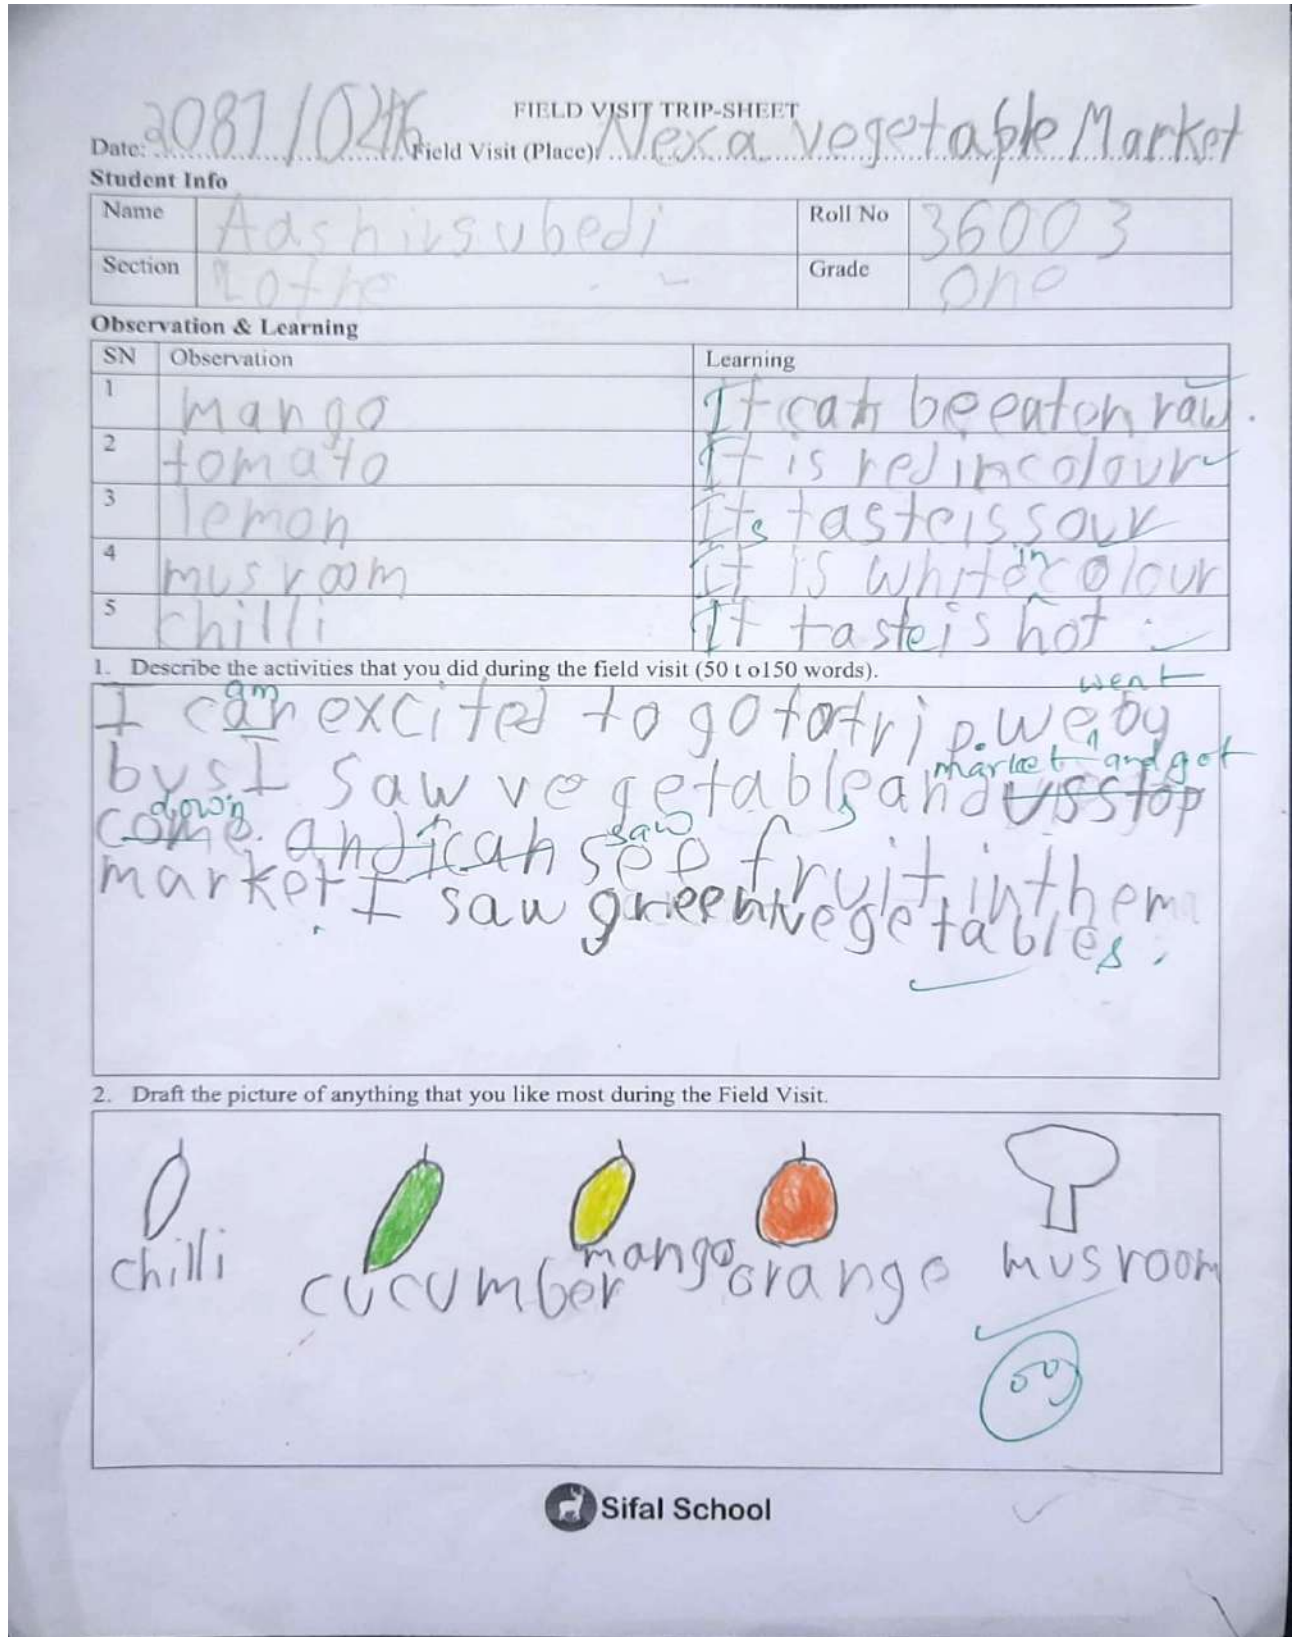 FIELD VISIT TRIP-SHEET
Date: 2081/02/16 Field Visit (Place): Nexa vegetable Market
Student Info
Name Aashirsubedi Roll No 36003
Section Grade one
Observation & Learning
SN Observation Learning
1 mango It can be eaton raw.
2 tomato It is red in colour
3 lemon Its taste is sour
4 musroom it is white in colour
5 chilli It taste is hot
1. Describe the activities that you did during the field visit (50 t o150 words).
went
am
I can excited to go to a trip. we by
market and got
bus I saw vegetables and us stop
down saw
come. and i can see fruit in them
market. I saw green vegetables.
2. Draft the picture of anything that you like most during the Field Visit.
chilli cucumber mango orange musroom
Sifal School